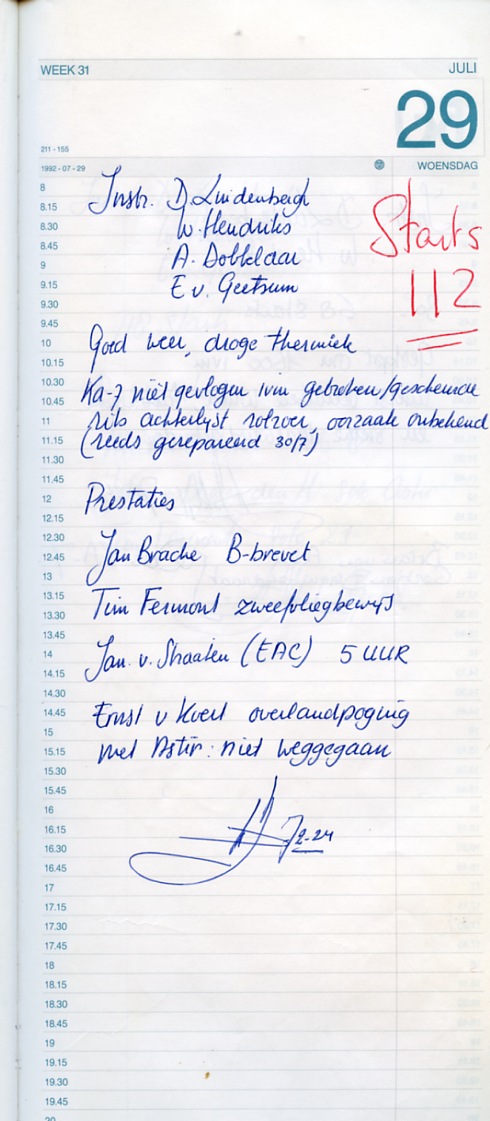 WEEK 31
JULI
29
211 - 155
1992 - 07 - 29
WOENSDAG
8
8.15
8.30
8.45
9
9.15
9.30
9.45
10
10.15
10.30
10.45
11
11.15
11.30
11.45
12
12.15
12.30
12.45
13
13.15
13.30
13.45
14
14.15
14.30
14.45
15
15.15
15.30
15.45
16
16.15
16.30
16.45
17
17.15
17.30
17.45
18
18.15
18.30
18.45
19
19.15
19.30
19.45
20
Instr. D. Luidenbergh
W. Hendriks
A. Dobbelaar
E v. Geetsum
Starts
112
Goed weer, droge thermiek
Ka-7 niet gevlogen ivm gebroken/gescheurde
rib achterlijst rolroer, oorzaak onbekend
(reeds gerepareerd 30/7)
Prestaties
Jan Brache B-brevet
Tim Fermont zweefvliegbewijs
Jan v. Straaten (EAC) 5 UUR
Ernst v Koert overlandpoging
met Astir: niet weggegaan